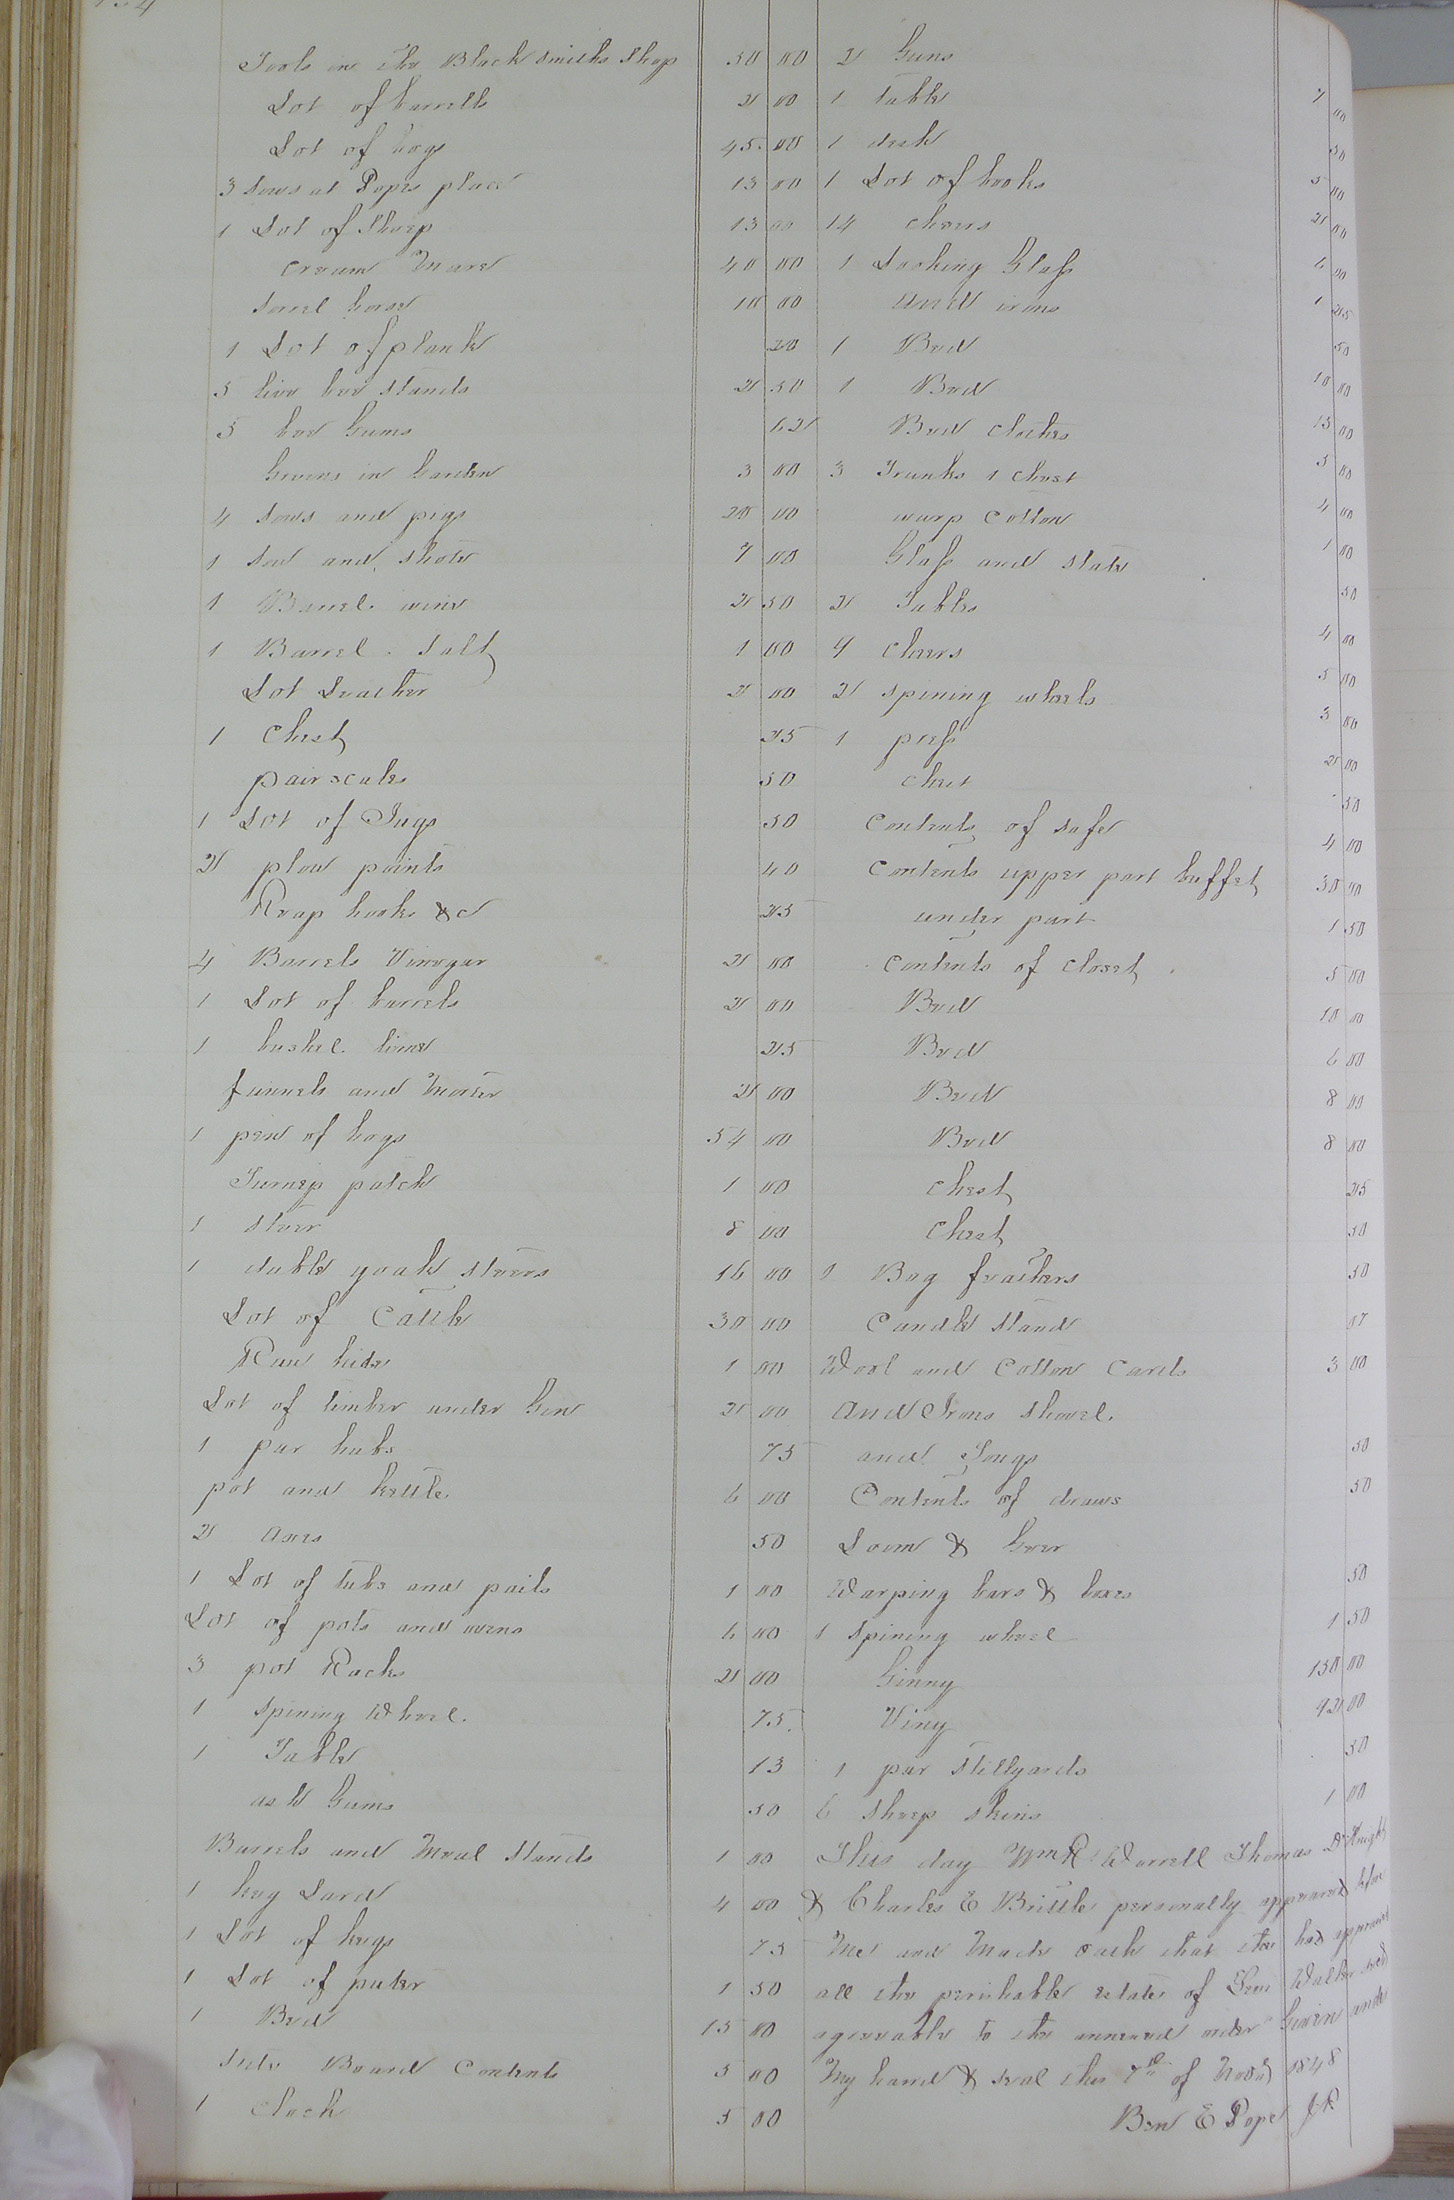 Tools in the Black Smiths Shop 50 00
Lot of barrells 2 00
Lot of hogs 45 00
3 Sows at Popes place 13 00
1 Lot of Sheep 13 00
cream Mare 40 00
Sorrel horse 10 00
1 Lot of plank 20
5 live bee stands 2 50
5 bee Gums 62
Greens in Garden 3 00
4 Sows and pigs 20 00
1 Sow and shote 7 00
1 Barrel wine 2 50
1 Barrel Salt 1 00
Lot Leather 2 00
1 Chest 25
pair scales 50
1 Lot of Jugs 50
2 plow points 40
Reap hooks &c 25
4 Barrels Vinegar 2 00
1 Lot of barrels 2 00
1 bushel lime 25
funnels and Morter 2 00
1 pen of hogs 54 00
Turnep patch 1 00
1 steer 8 00
1 duble yoak steers 16 00
Lot of Cattle 30 00
Raw hide 1 00
Lot of timber under Gin 2 00
1 par hubs 75
pot and kettle 6 00
2 axes 50
1 Lot of tubs and pails 1 00
Lot of pots and ovens 6 00
3 pot Racks 2 00
1 Spining Wheel 75
1 Table 13
ash Gums 50
Barrels and Meal Stands 1 00
1 keg Lard 4 00
1 Lot of kegs 75
1 Lot of puter 1 50
1 Bed 15 00
Side Board Contents 5 00
1 clock 5 00
2 Guns 7 00
1 table 50
1 desk 5 00
1 Lot of books 2 00
14 cheers 6 00
1 Looking Glass 1 25
and irons 50
1 Bed 10 00
1 Bed 15 00
Bed clothes 5 00
3 Trunks 1 chest 4 00
warp cotton 1 00
Glass and slate 50
2 Tables 4 00
9 cheers 5 00
2 spining wheels 3 00
1 press 2 00
chest 50
Contents of safe 4 00
Contents upper part buffet 30 00
under part 1 50
Contents of closet 5 00
Bed 10 00
Bed 6 00
Bed 8 00
Bed 8 00
chest 25
chest 50
1 Bag feathers 50
Candle Stand 07
Wool and Cotton Cards 3 00
And Irons Shovel
and Tongs 50
Contents of draws 50
Loom & Geer
Warping bars & boxes 50
1 Spining wheel 1 50
Ginny 150 00
Viny
1 par Stillyards 50
6 Sheep skins 1 00
This day Wm R Worrell Thomas D Knight
& Charles E Brittle personally appeared before
Me and Made oath that the has appraised
all the perishable estate of Walker decd
agreeable to the annexed order Given under
My hand & seal this 7th of 1848
Ben E Pope JP